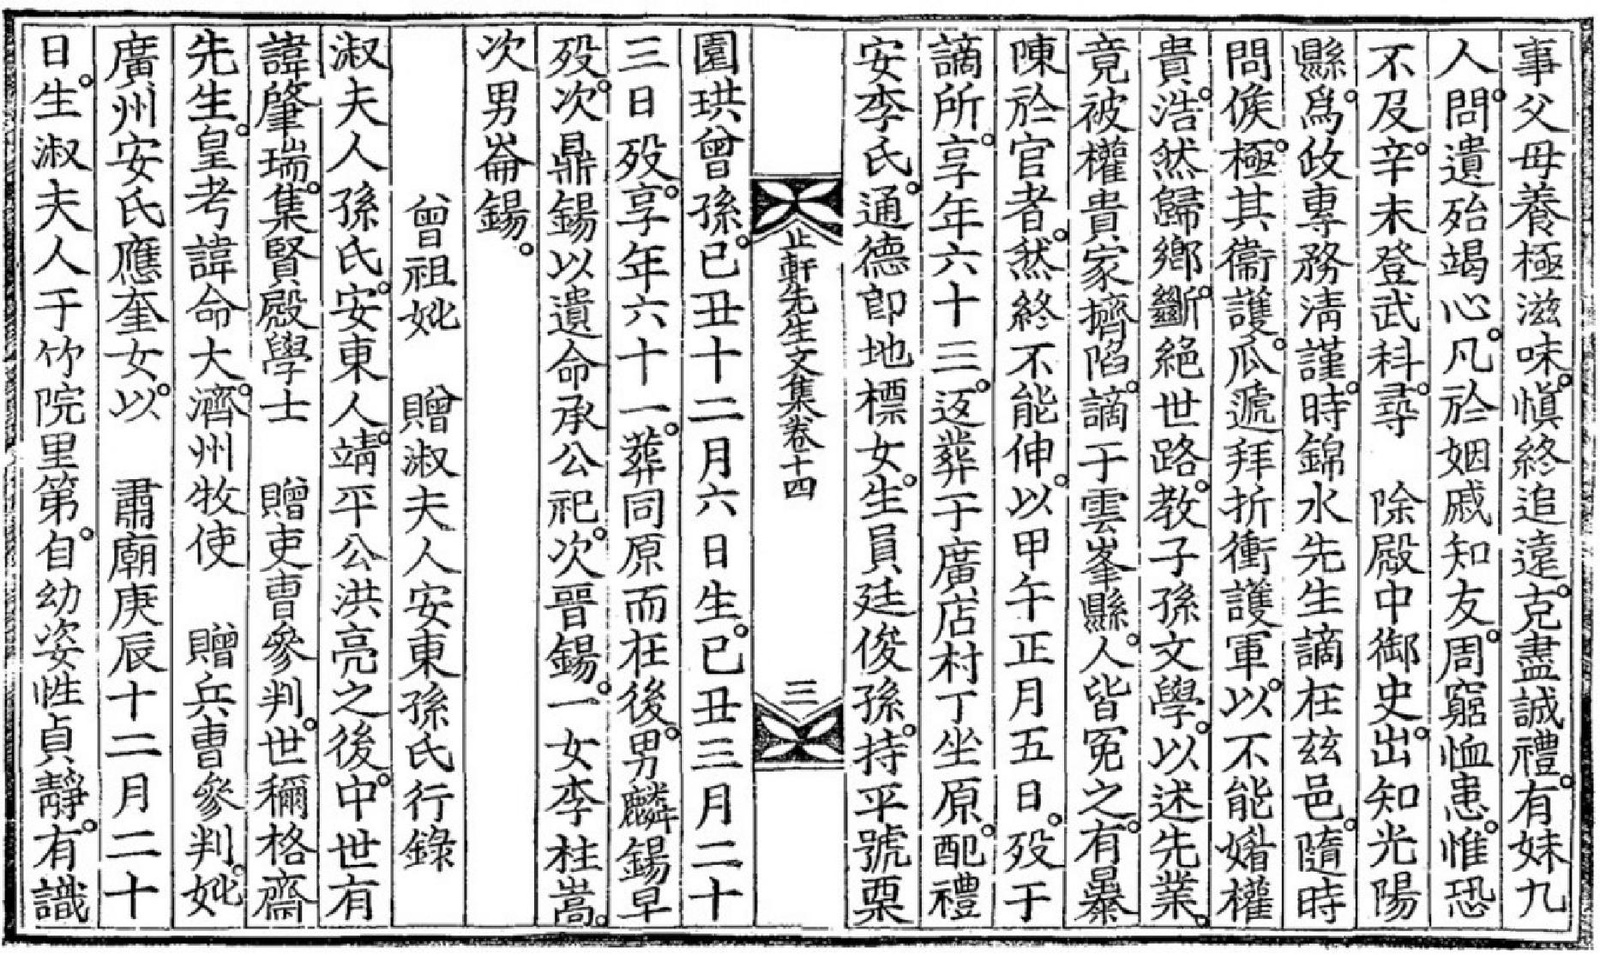 事父母養極滋味。愼終追遠。克盡誠禮。有妹九
人。問遺殆竭心。凡於姻戚知友。周窮恤患。惟恐
不及。辛未登武科。尋　除殿中御史。出知光陽
縣。爲政專務淸謹。時錦水先生謫在玆邑。隨時
問候。極其衞護。瓜遞拜折衝護軍。以不能媚權
貴。浩然歸鄕。斷絶世路。敎子孫文學。以述先業。
竟被權貴家擠陷。謫于雲峯縣。人皆冤之。有暴
陳於官者。然終不能伸。以甲午正月五日。歿于
謫所。享年六十三。返葬于廣店村丁坐原。配禮
安李氏。通德郞地標女。生員廷俊孫。持平號栗
止軒先生文集卷十四
三
園珙曾孫。己丑十二月六日生。己丑三月二十
三日歿。享年六十一。葬同原而在後。男麟錫早
歿。次鼎錫以遺命承公祀。次晉錫。一女李柱嵩。
次男崙錫。
曾祖妣　贈淑夫人安東孫氏行錄
淑夫人孫氏。安東人。靖平公洪亮之後。中世有
諱肇瑞。集賢殿學士　贈吏曹參判。世稱格齋
先生。皇考諱命大。濟州牧使　贈兵曹參判。妣
廣州安氏應奎女。以　肅廟庚辰十二月二十
日。生淑夫人于竹院里第。自幼姿性貞靜。有識